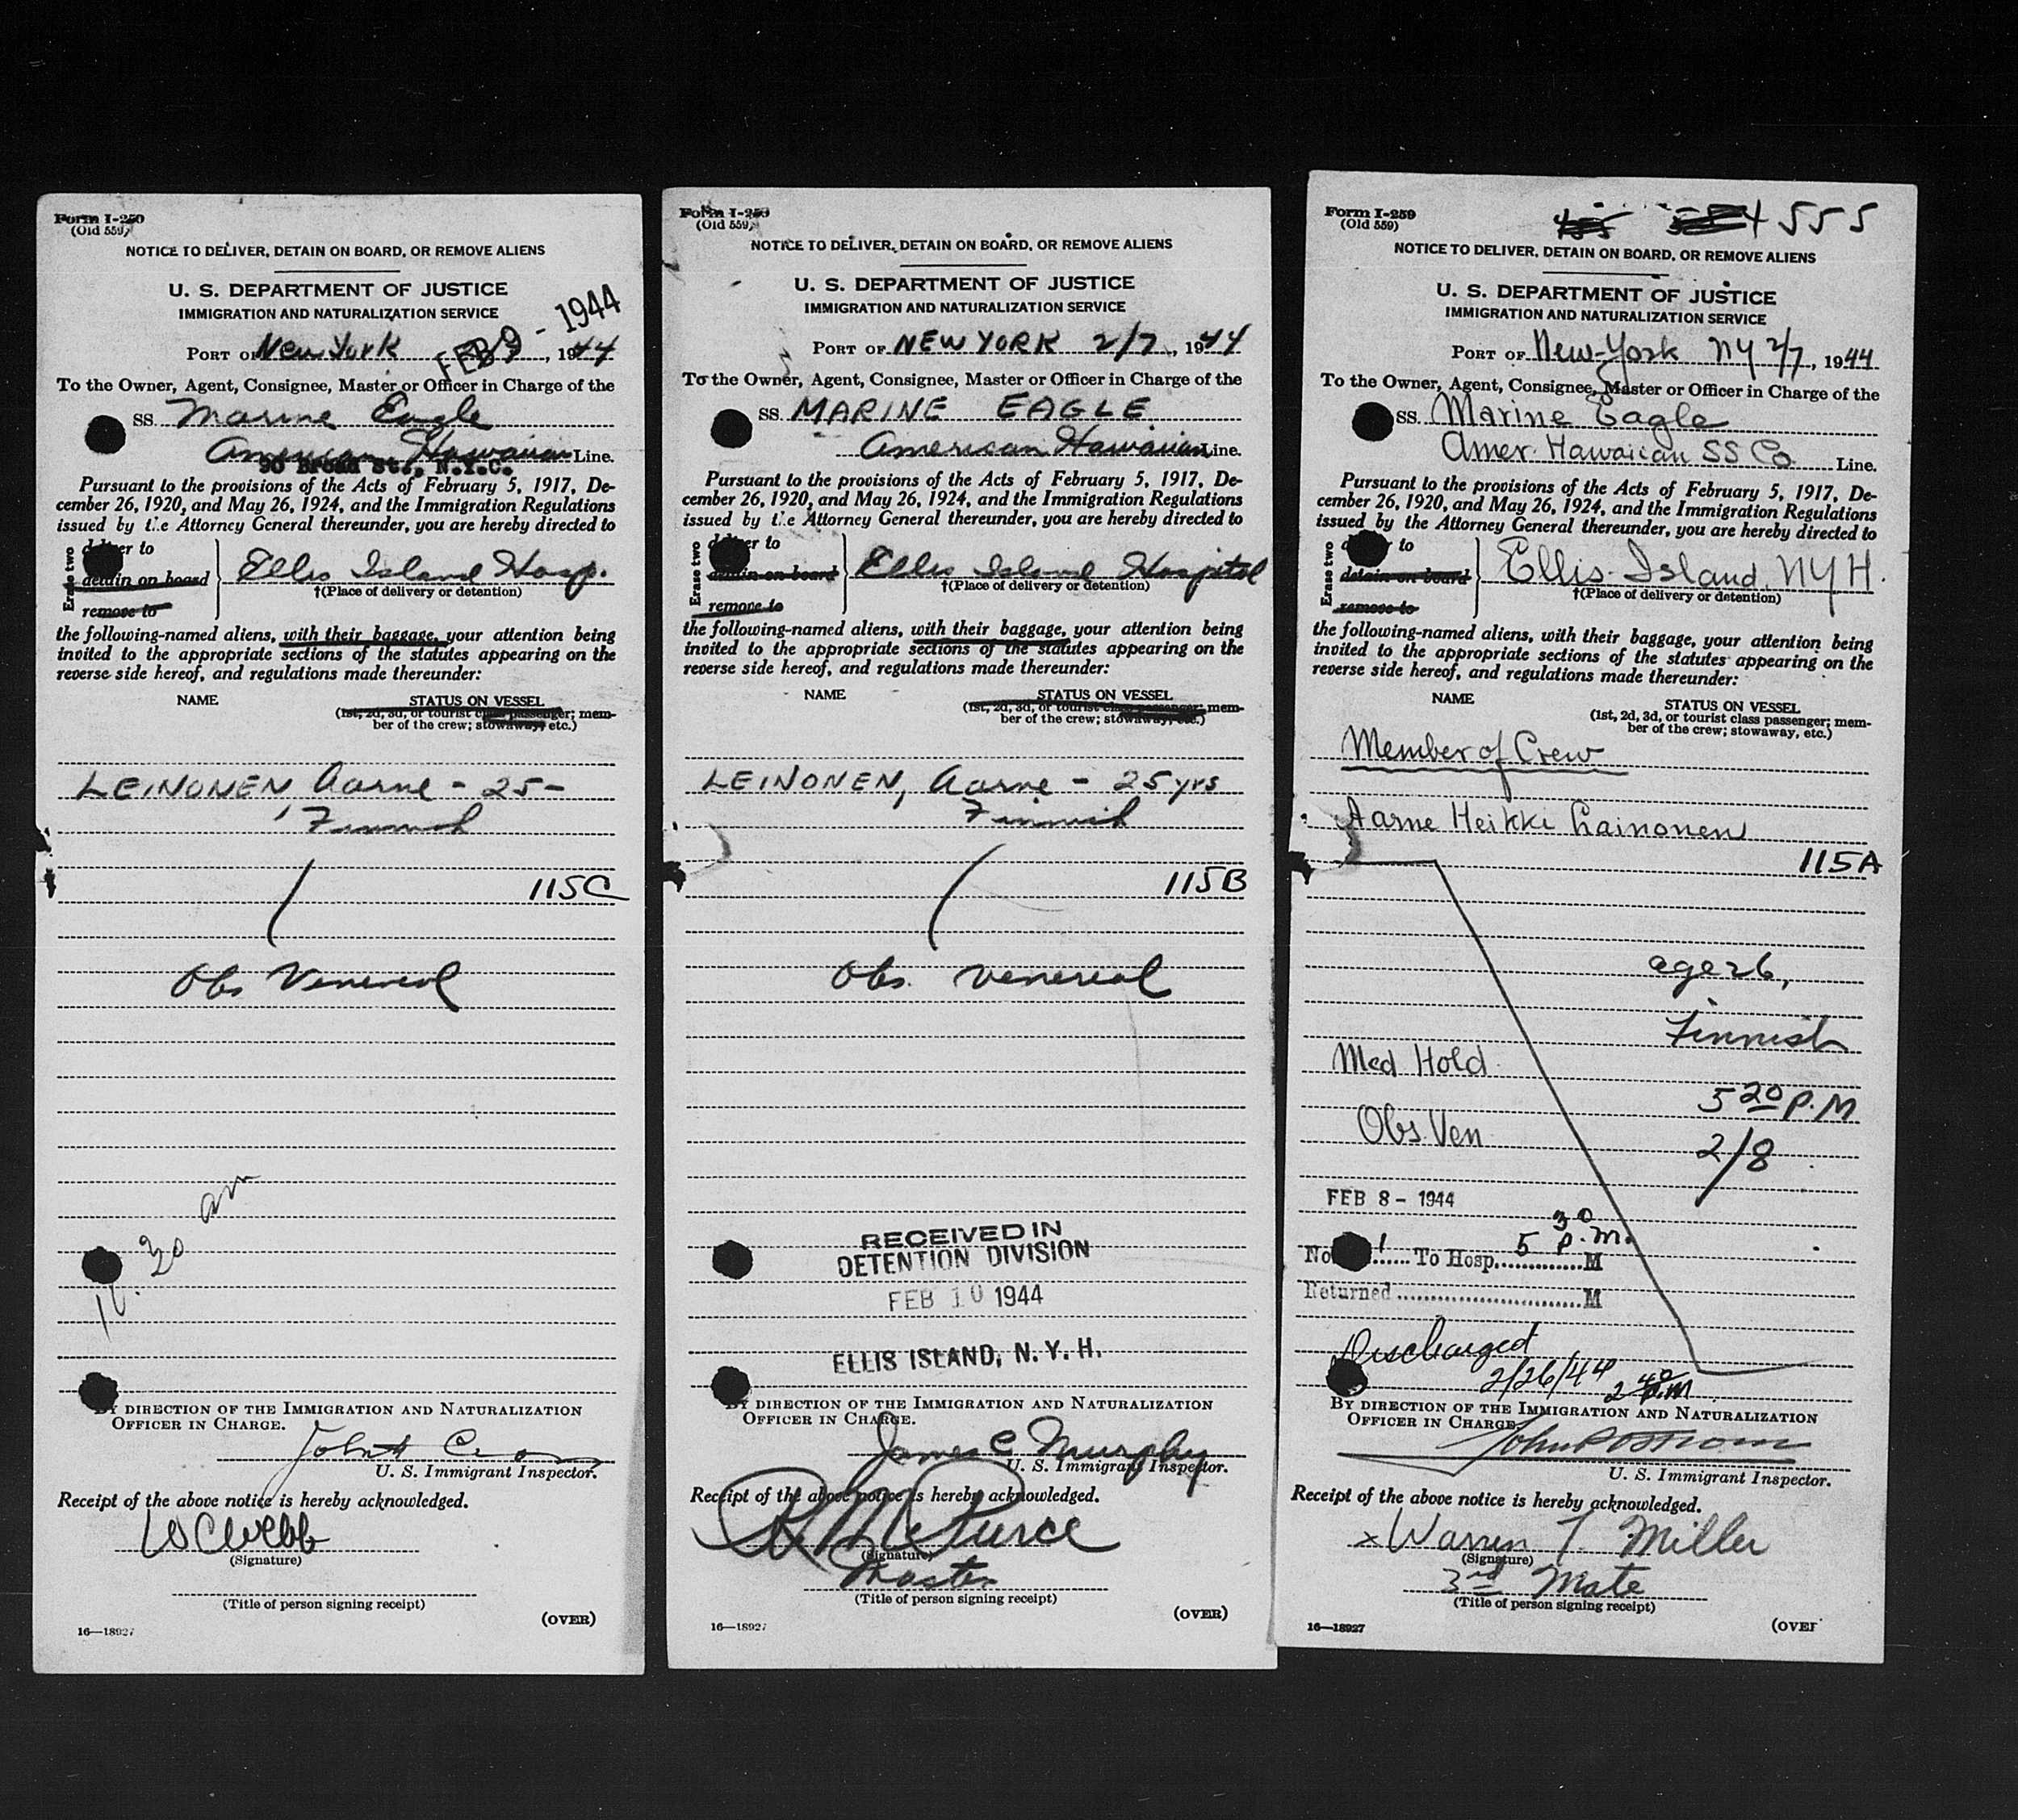 Form I-259
(Old 559)
NOTICE TO DELIVER, DETAIN ON BOARD, OR REMOVE ALIENS
U. S. DEPARTMENT OF JUSTICE
IMMIGRATION AND NATURALIZATION SERVICE
FEB 9 - 1944
PORT OF New York , 1944
To the Owner, Agent, Consignee, Master or Officer in Charge of the
SS. Marine Eagle
American Hawaiian Line.
90 Broad St., N.Y.C.
Pursuant to the provisions of the Acts of February 5, 1917, De-
cember 26, 1920, and May 26, 1924, and the Immigration Regulations
issued by the Attorney General thereunder, you are hereby directed to
Erase two
deliver to
detain on board
remove to
Ellis Island Hosp.
†(Place of delivery or detention)
the following-named aliens, with their baggage, your attention being
invited to the appropriate sections of the statutes appearing on the
reverse side hereof, and regulations made thereunder:
NAME STATUS ON VESSEL
(1st, 2d, 3d, or tourist class passenger; mem-
ber of the crew; stowaway, etc.)
LEINONEN Aarne - 25 -
Finnish
115C
Obs Venereal
am
30
By DIRECTION OF THE IMMIGRATION AND NATURALIZATION
OFFICER IN CHARGE.
U. S. Immigrant Inspector.
Receipt of the above notice is hereby acknowledged.
W C Webb
(Signature)
(Title of person signing receipt)
(OVER)
16—18927
Form I-259
(Old 559)
NOTICE TO DELIVER, DETAIN ON BOARD, OR REMOVE ALIENS
U. S. DEPARTMENT OF JUSTICE
IMMIGRATION AND NATURALIZATION SERVICE
PORT OF NEW YORK 2/7, 1944
To the Owner, Agent, Consignee, Master or Officer in Charge of the
SS. MARINE EAGLE
American Hawaiian Line.
Pursuant to the provisions of the Acts of February 5, 1917, De-
cember 26, 1920, and May 26, 1924, and the Immigration Regulations
issued by the Attorney General thereunder, you are hereby directed to
Erase two
deliver to
detain on board
remove to
Ellis Island Hospital
†(Place of delivery or detention)
the following-named aliens, with their baggage, your attention being
invited to the appropriate sections of the statutes appearing on the
reverse side hereof, and regulations made thereunder:
NAME STATUS ON VESSEL
(1st, 2d, 3d, or tourist class passenger; mem-
ber of the crew; stowaway, etc.)
LEINONEN, Aarne - 25 yrs
Finnish
115B
Obs. venereal
RECEIVED IN
DETENTION DIVISION
FEB 10 1944
ELLIS ISLAND, N. Y. H.
By DIRECTION OF THE IMMIGRATION AND NATURALIZATION
OFFICER IN CHARGE.
James C Murphy
U. S. Immigrant Inspector.
Receipt of the above notice is hereby acknowledged.
(Signature)
Master
(Title of person signing receipt)
(OVER)
16—18927
Form I-259
(Old 559)
4555
NOTICE TO DELIVER, DETAIN ON BOARD, OR REMOVE ALIENS
U. S. DEPARTMENT OF JUSTICE
IMMIGRATION AND NATURALIZATION SERVICE
PORT OF New-York NY 2/7, 1944
To the Owner, Agent, Consignee, Master or Officer in Charge of the
SS. Marine Eagle
Amer. Hawaiian SS Co. Line.
Pursuant to the provisions of the Acts of February 5, 1917, De-
cember 26, 1920, and May 26, 1924, and the Immigration Regulations
issued by the Attorney General thereunder, you are hereby directed to
Erase two
deliver to
detain on board
remove to
Ellis Island, NYH.
†(Place of delivery or detention)
the following-named aliens, with their baggage, your attention being
invited to the appropriate sections of the statutes appearing on the
reverse side hereof, and regulations made thereunder:
NAME STATUS ON VESSEL
(1st, 2d, 3d, or tourist class passenger; mem-
ber of the crew; stowaway, etc.)
Member of Crew
Aarne Heikki Lainonen
115A
age 26,
Finnish
Med Hold
5 20 P.M
Obs. Ven
2/8
FEB 8 - 1944
No. 1 To Hosp. 5 30 P.m. M
Returned M
Discharged
2/26/44 2 40 P.M
By DIRECTION OF THE IMMIGRATION AND NATURALIZATION
OFFICER IN CHARGE.
U. S. Immigrant Inspector.
Receipt of the above notice is hereby acknowledged.
x Warren T. Miller
(Signature)
3rd Mate
(Title of person signing receipt)
(OVER
16—18927